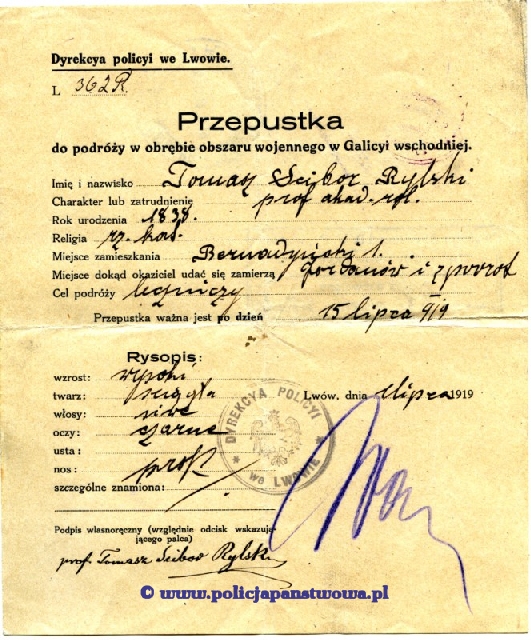 Dyrekcya policyi we Lwowie.
L 362 R.
Przepustka
do podróży w obrębie obszaru wojennego w Galicyi wschodniej.
Imię i nazwisko Tomasz Scibor Rylski
Charakter lub zatrudnienie prof akad. rol.
Rok urodzenia 1838.
Religia rz. kat.
Miejsce zamieszkania 1.
Miejsce dokąd okaziciel udać się zamierzą Jordanów i zpowrot
Cel podróży leczniczy
Przepustka ważna jest po dzień 15 lipca 919
Rysopis:
wzrost: wysoki
twarz: ściągła
włosy: siwe
oczy: czarne
usta:
nos: prost
szczególne znamiona:
DYREKCYA POLICYI
* we LWOWIE *
Lwów, dnia lipca 1919
Podpis własnoręczny (względnie odcisk wskazują-
jącego palca)
prof. Tomasz Scibor Rylski
© www.policjapanstwowa.pl